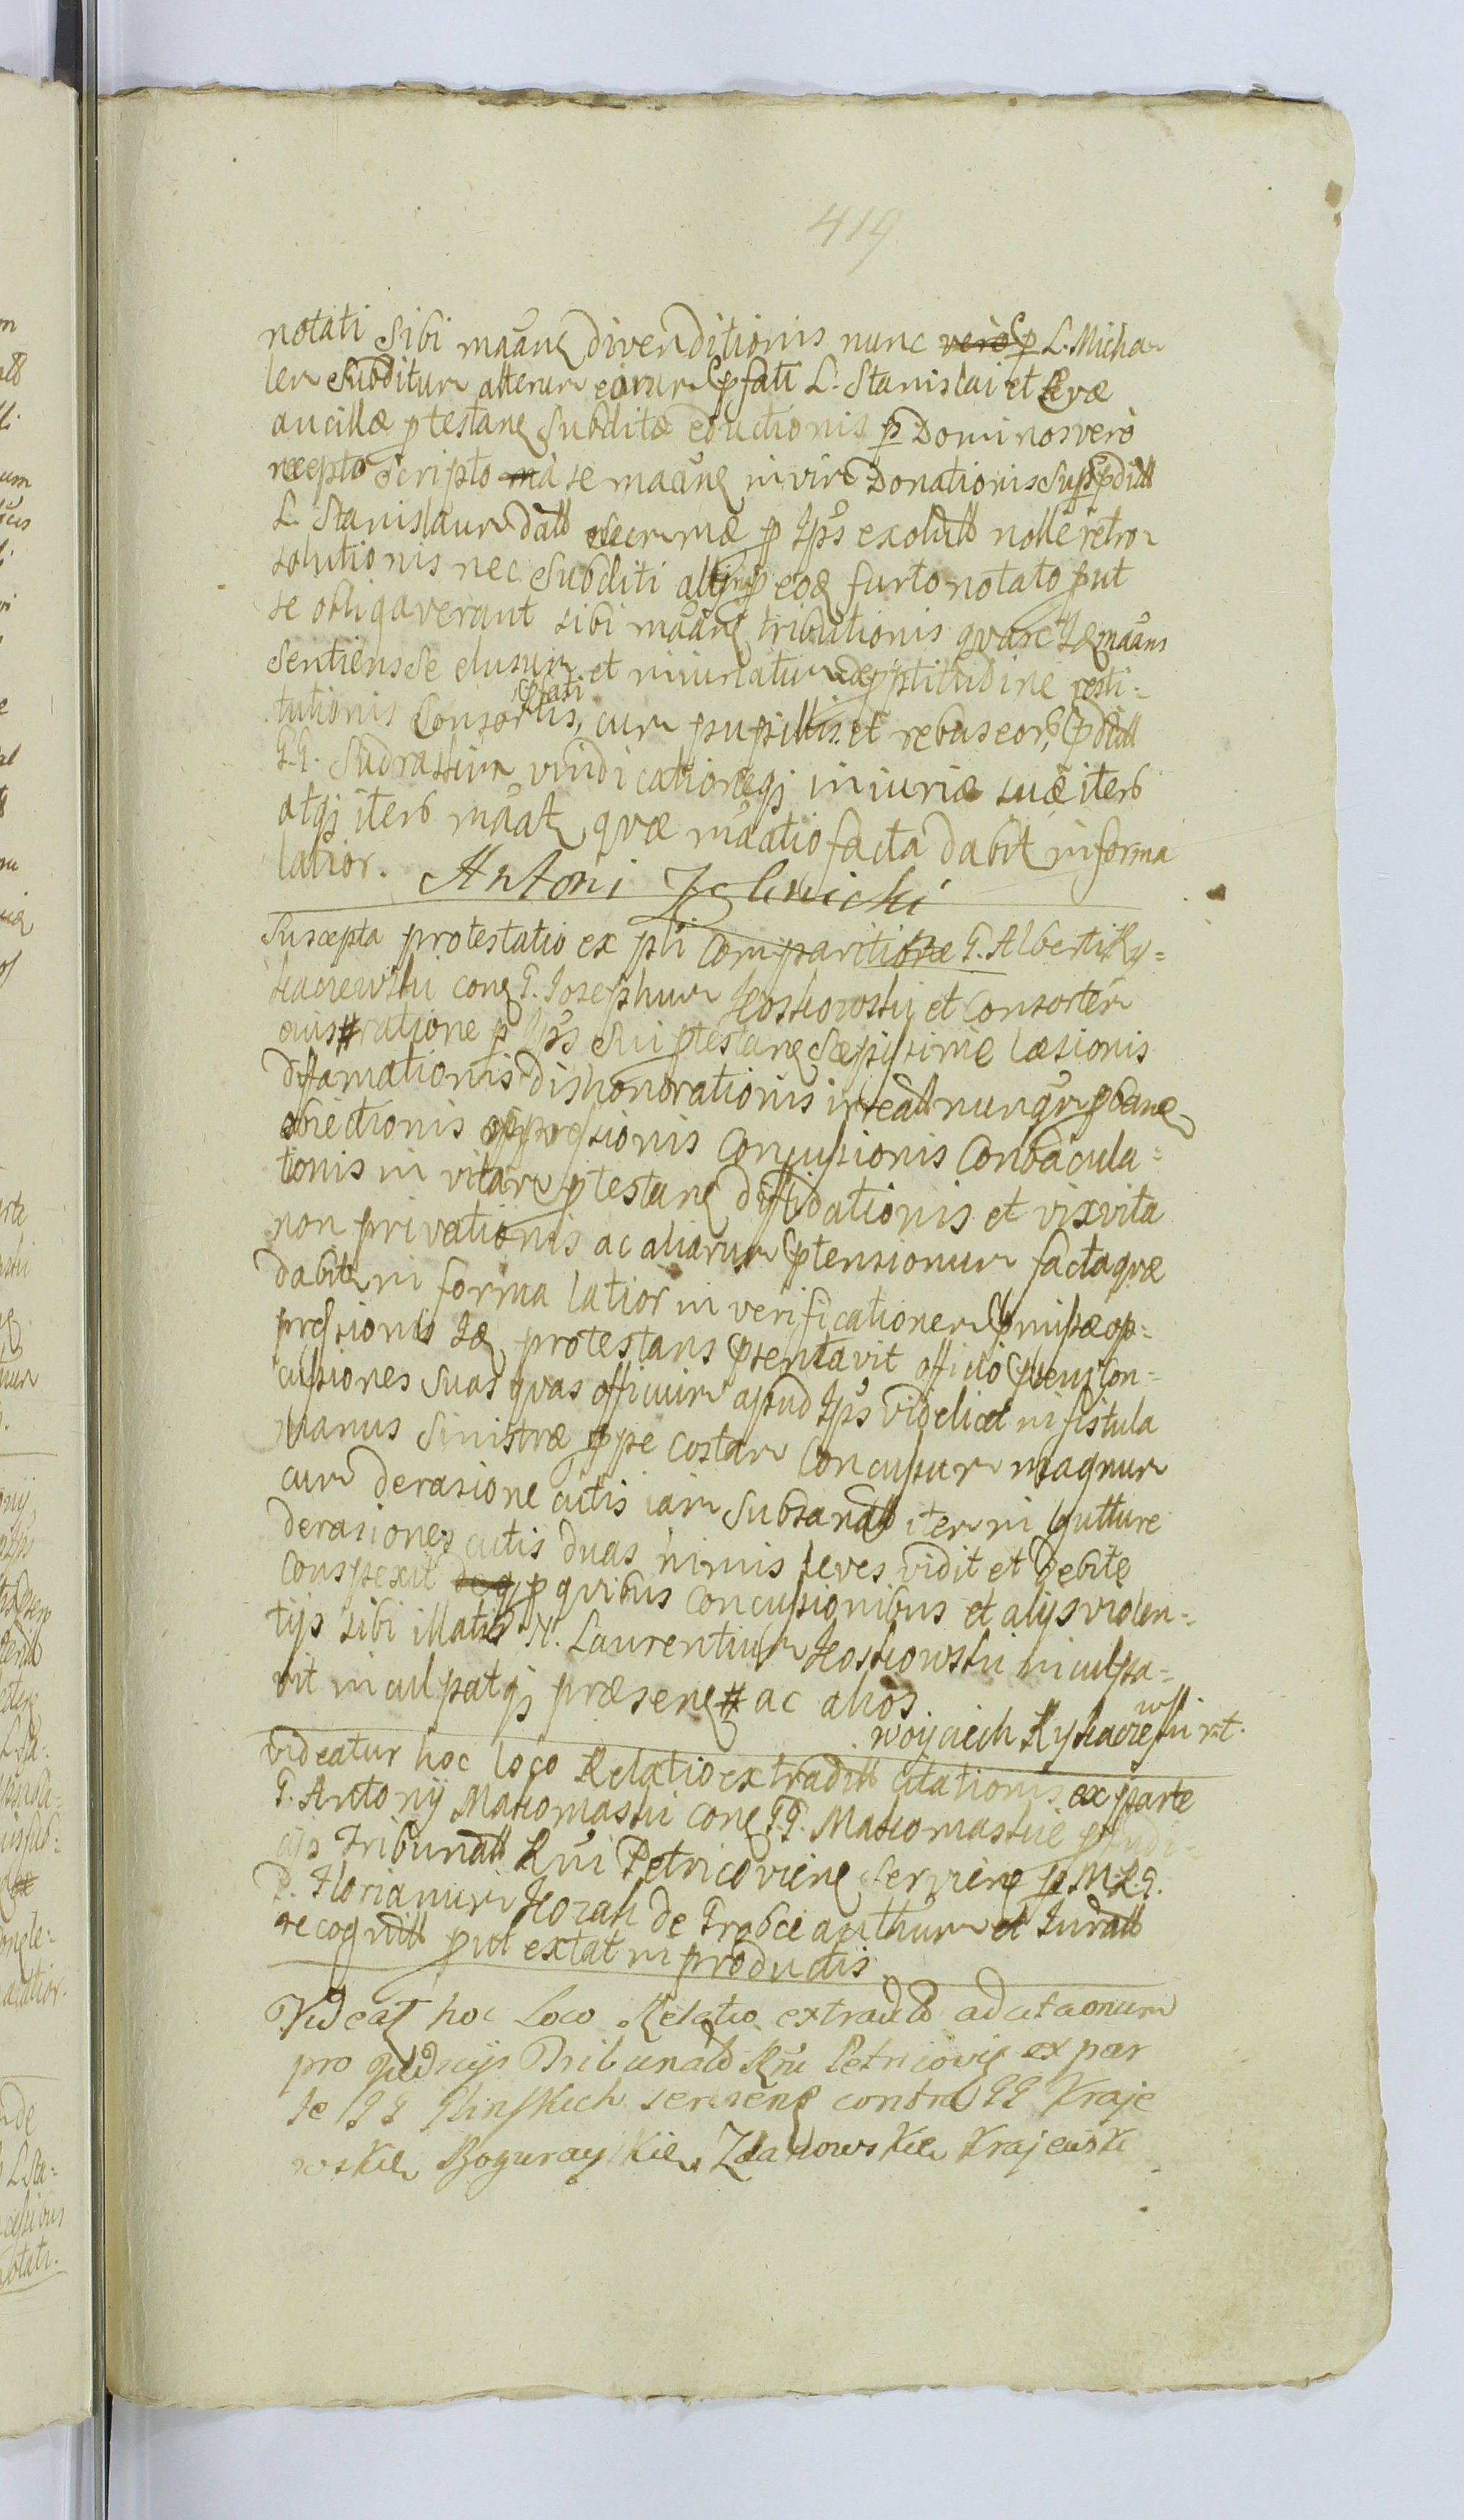 419
notati sibi maãne divenditionis nunc vero p L. Micha
lem Subditum alterum eorum pfati L. Stanislai et Evæ
ancillæ ptestane Subditæ eductionis p Dominos vero
recepto Scripto a se maane in vim Donationis
L. Stanislaum datt p Ips exolutt nolle retro
solutionis nec Subditi furto notato put
se obligaverant sibi maane tributionis qvare Idem maans
Sentiens Se elusum et iniuriatum de pstitudine resti=
tutionis Consortis, pfati cum pupillis et rebus eor, pditt
G.G. vindicationeqj iniuriæ suæ iterb
atqj iterb maat qvæ maatio facta dabit in forma
latior. Antoni
Suscepta protestatio ex pti Comparitione G. Alberti Ry=
kaczewski cone G. Josephum Koskowski et Consortem
eius # ratione p Ips Sui ptestane Sæpissime læsionis
diffamationis dishonorationis in reatt nunqvam pbane
obiectionis oppressionis Concussionis Conbacula=
tionis in vitam ptestane diffidationis et vix vita
non privationis ac aliarum ptensionum facta qvæ
dabit in forma latior in verificationem pmissæ op=
pressionis Idem protestans psentavit officio pseni Con=
cussiones Suas qvas officium apud Ips videlicet in fistula
manus Sinistræ ppe Costam Concussum magnum
cum derasione cutis iam Subsanatt item in gutture
derasiones cutis duas nimis leves vidit et Debite
Conspexit de q p qvibus Concussionibus et alijs violen=
tijs sibi illatis N. Laurentium Koskowski inculpa=
vit inculpatqj præsene # ac alios
Woyciech Rykaczewski mt.
videatur hoc loco Relatio extraditt Citationis ex parte
G. Antonij Makomaski cone G.G. Makomaskie p Iudi=
cijs Tribunatt Rni Petricoviene Serviene p M.L.G.
P. Florianum Kozak de Grabce authum et Iuratt
recognitt put extat in productis
Videat hoc Loco Relatio extradtt adcitaonum
pro Judicijs Tribunatt Rni Petricovie ex par
te GG Glinskich serviene contra GG Kraje
wskie Zdanowskie Krajewski